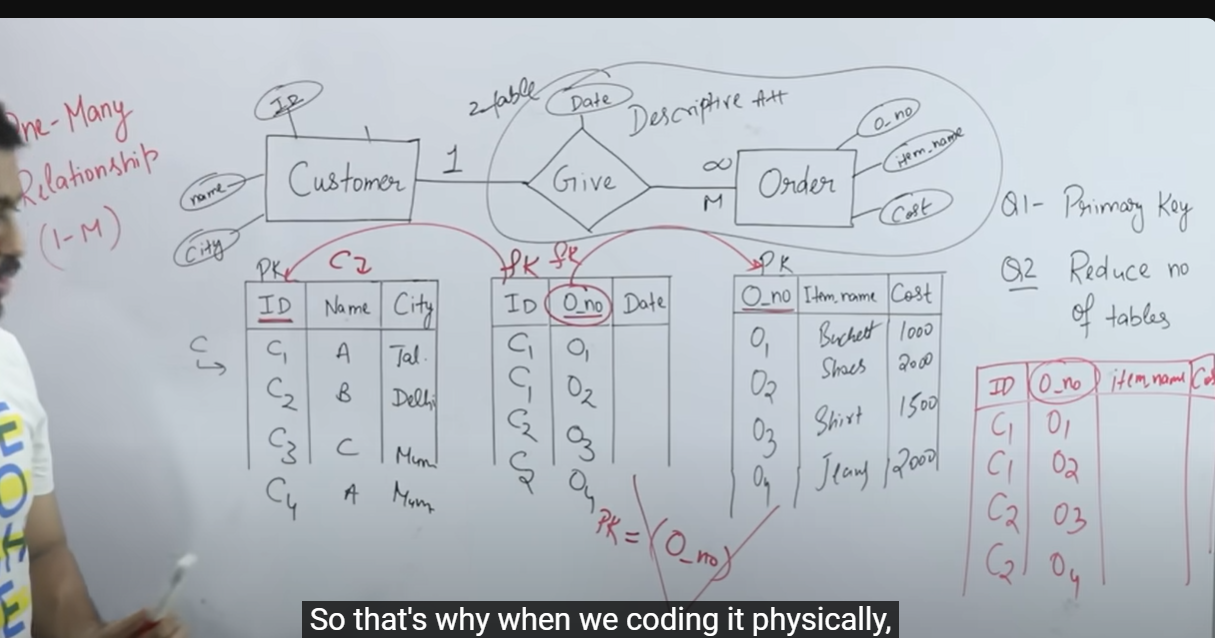 One-Many
Relationship
(1-M)
ID
name
City
Customer
1
2 table
Date
Descriptive Att
Give
∞
M
Order
O_no
item_name
Cost
Q1- Primary Key
Q2 Reduce no
of tables
PK
C2
ID Name City
C1 A Jal.
C2 B Delhi
C3 C Mum
C4 A Mum
C
fk fk
ID O_no Date
C1 O1
C1 O2
C2 O3
C2 O4
PK = (O_no)
PK
O_no Item_name Cost
O1 Buchest 1000
O2 Shoes 2000
O3 Shirt 1500
O4 Jeans 2000
ID O_no item name Cos
C1 O1
C1 O2
C2 O3
C2 O4
So that's why when we coding it physically,